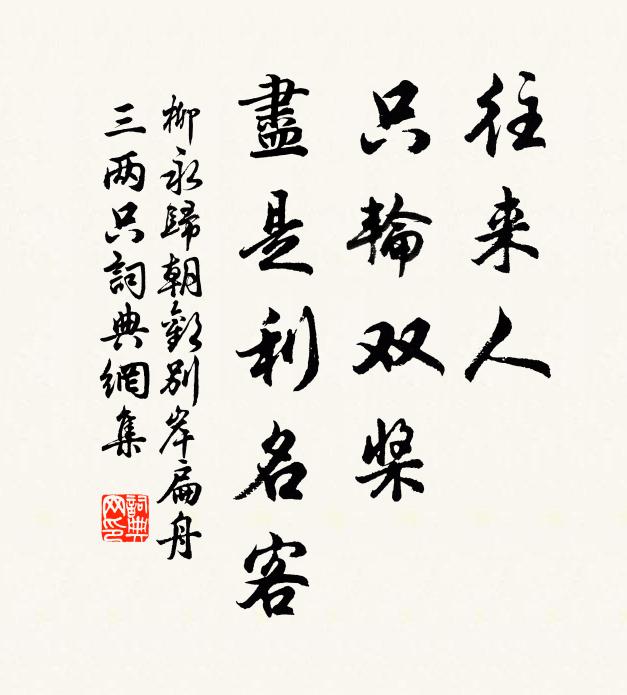 往来人
只輪双桨
盡是利名客
柳永歸朝歡别岸扁舟
三两只詞典網集
詞典网印